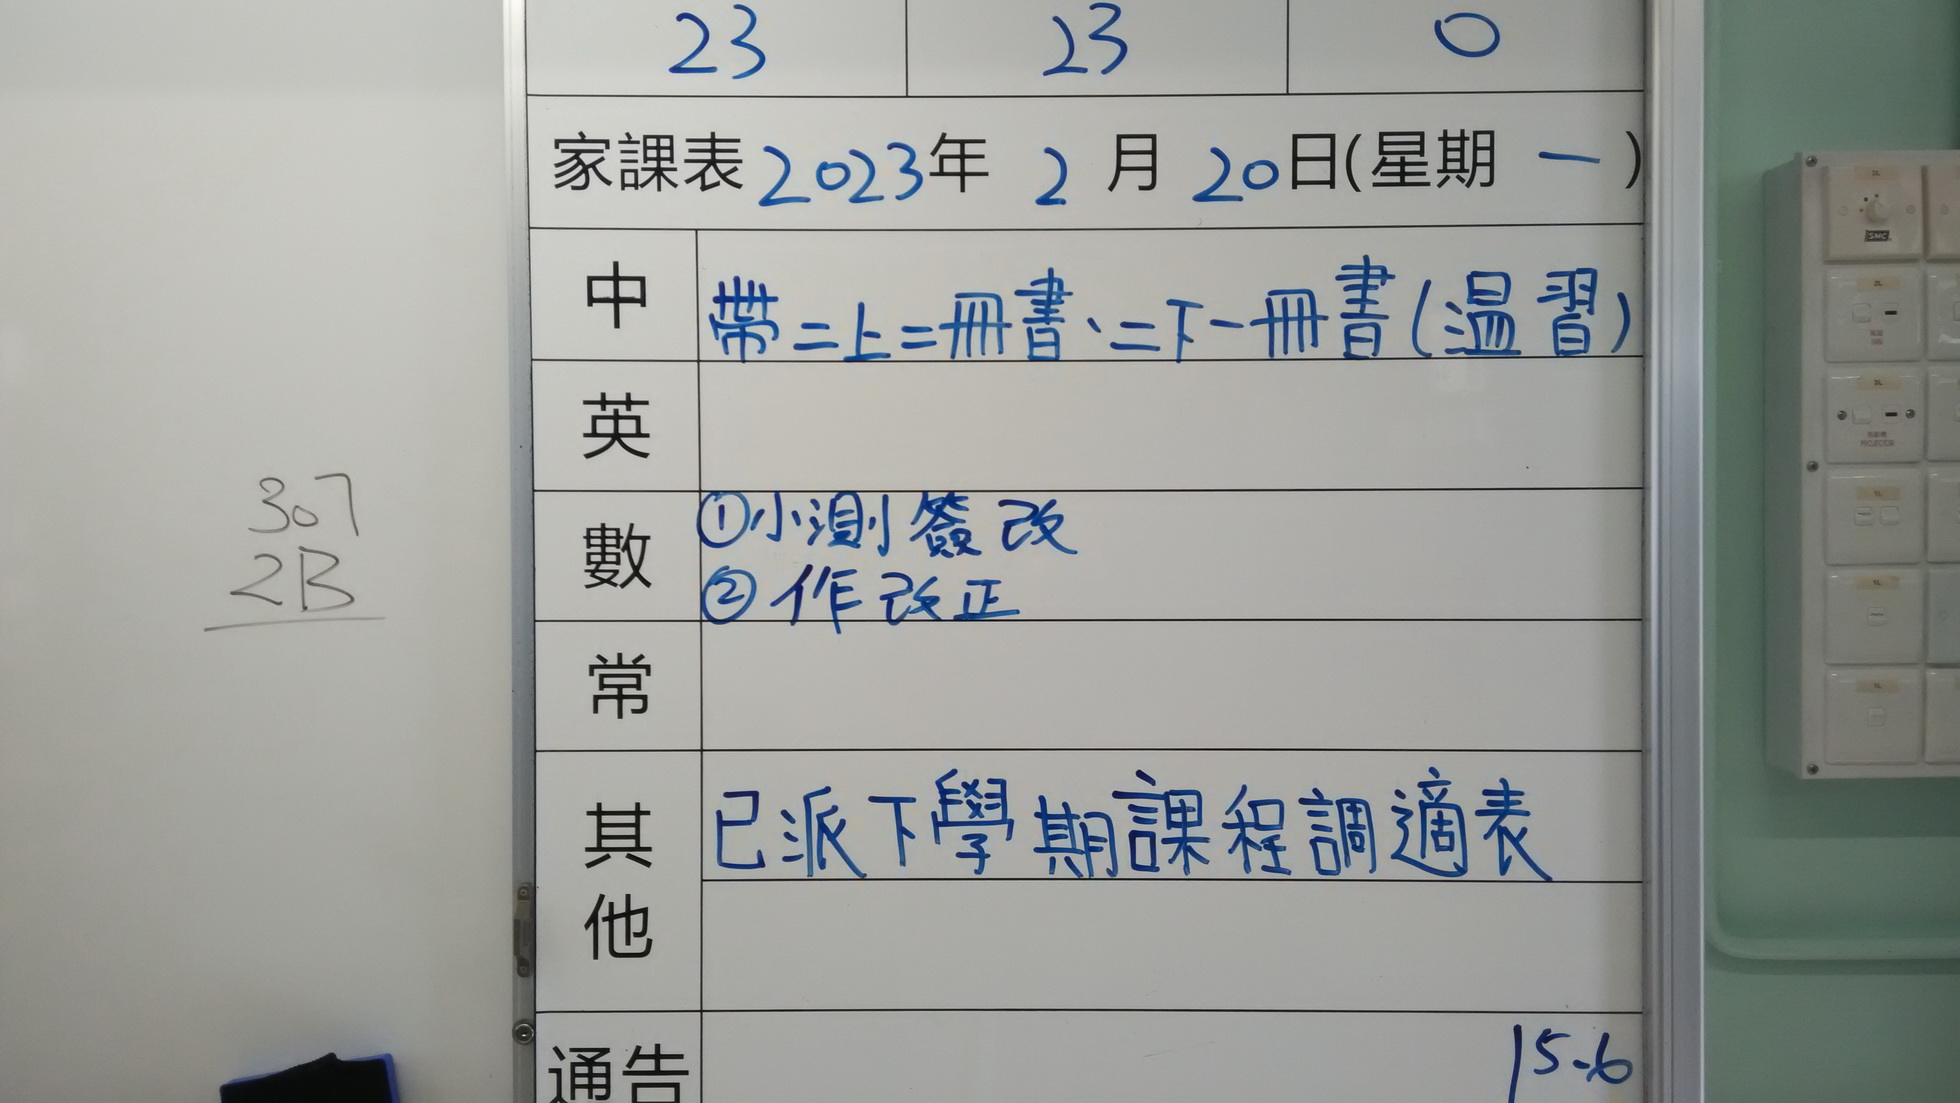 23 23 0
家課表 2023年 2 月 20日(星期 一 )
中 帶二上二冊書、二下一冊書(温習)
英
數 ①小測簽改
②作改正
常
其他 已派下學期課程調適表
通告 15-6
307
2B
SMC
PROJECTOR